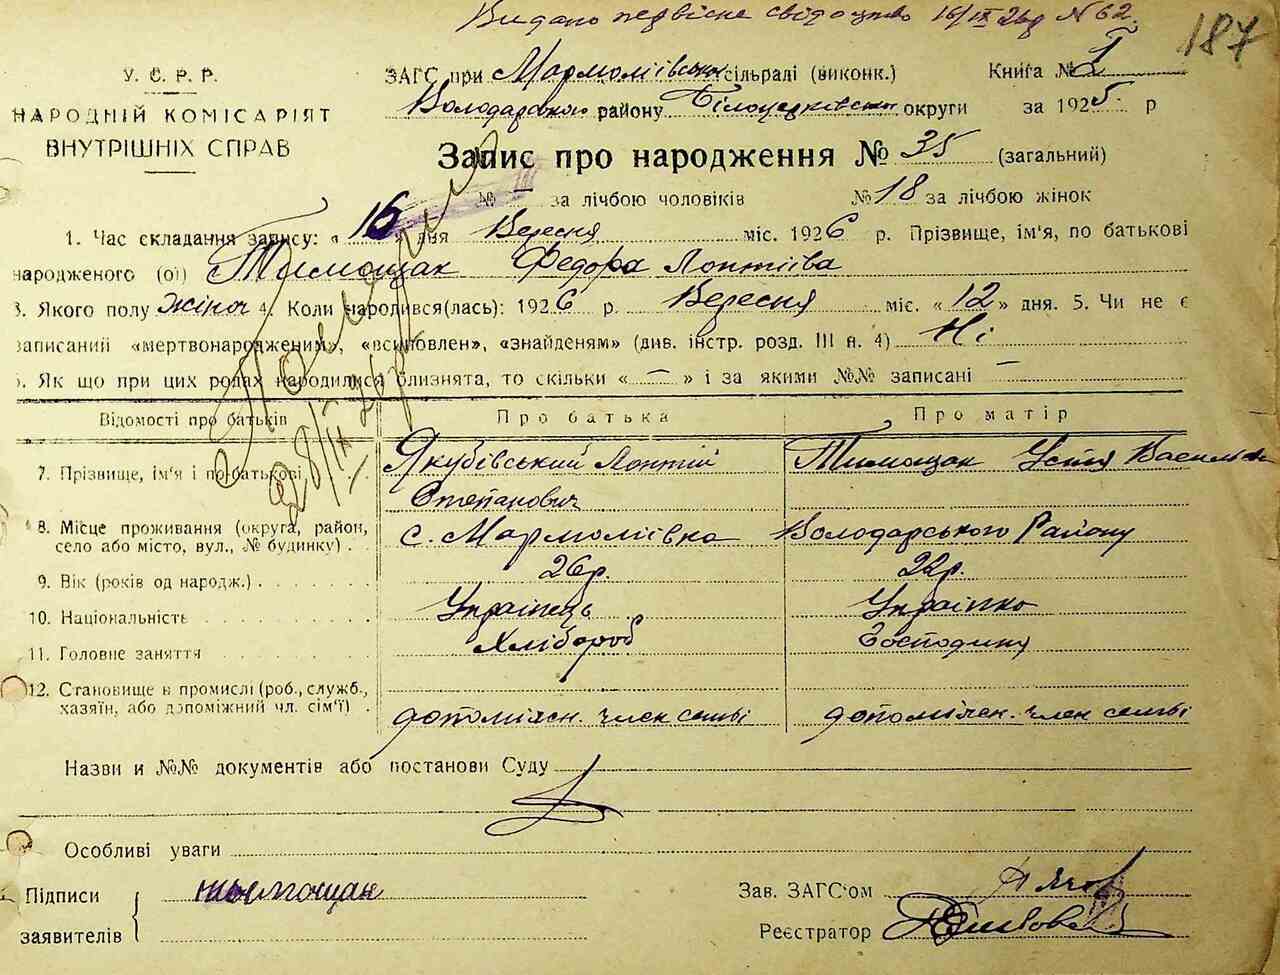 Видано первісне свідоцтво 16/IX 26р N 62.
187
У. С. Р. Р.
НАРОДНІЙ КОМІСАРІЯТ
ВНУТРІШНІХ СПРАВ
ЗАГС при Мармоліївській сільраді (виконк.) Книга № I
Володарського району Білоцерківської округи за 1925 р
Запис про народження № 35 (загальний)
№ за лічбою чоловіків № 18 за лічбою жінок
1. Час складання запису: « 16 » дня Вересня міс. 1926 р. Прізвище, ім'я, по батькові
народженого (ої) Тимощак Федора Лоптіїва
3. Якого полу жіноч 4. Коли народився(лась): 1926 р. Вересня міс. «12» дня. 5. Чи не є
записаний «мертвонародженим», «всиновлен», «знайденям» (див. інстр. розд. III п. 4) Ні
6. Як що при цих родах народилися близнята, то скільки « — » і за якими №№ записані —
Помер
28/IX 26р
Відомості про батьків Про батька Про матір
7. Прізвище, ім'я і по-батькові Якубівський Лоптій Степанович Тимощак Устя
8. Місце проживання (округа, район, село або місто, вул., № будинку) . с. Мармоліївка Володарського Району
9. Вік (років од народж.) 26р. 22р.
10. Національність Українець Українка
11. Головне заняття Хлібороб Господиня
12. Становище в промислі (роб., служб., хазяїн, або допоміжний чл. сім'ї) . допоміжн. член семьі допоміжн. член семьі
Назви и №№ документів або постанови Суду
Особливі уваги
Підписи
заявителів
Тимощак
Зав. ЗАГС'ом
Реєстратор